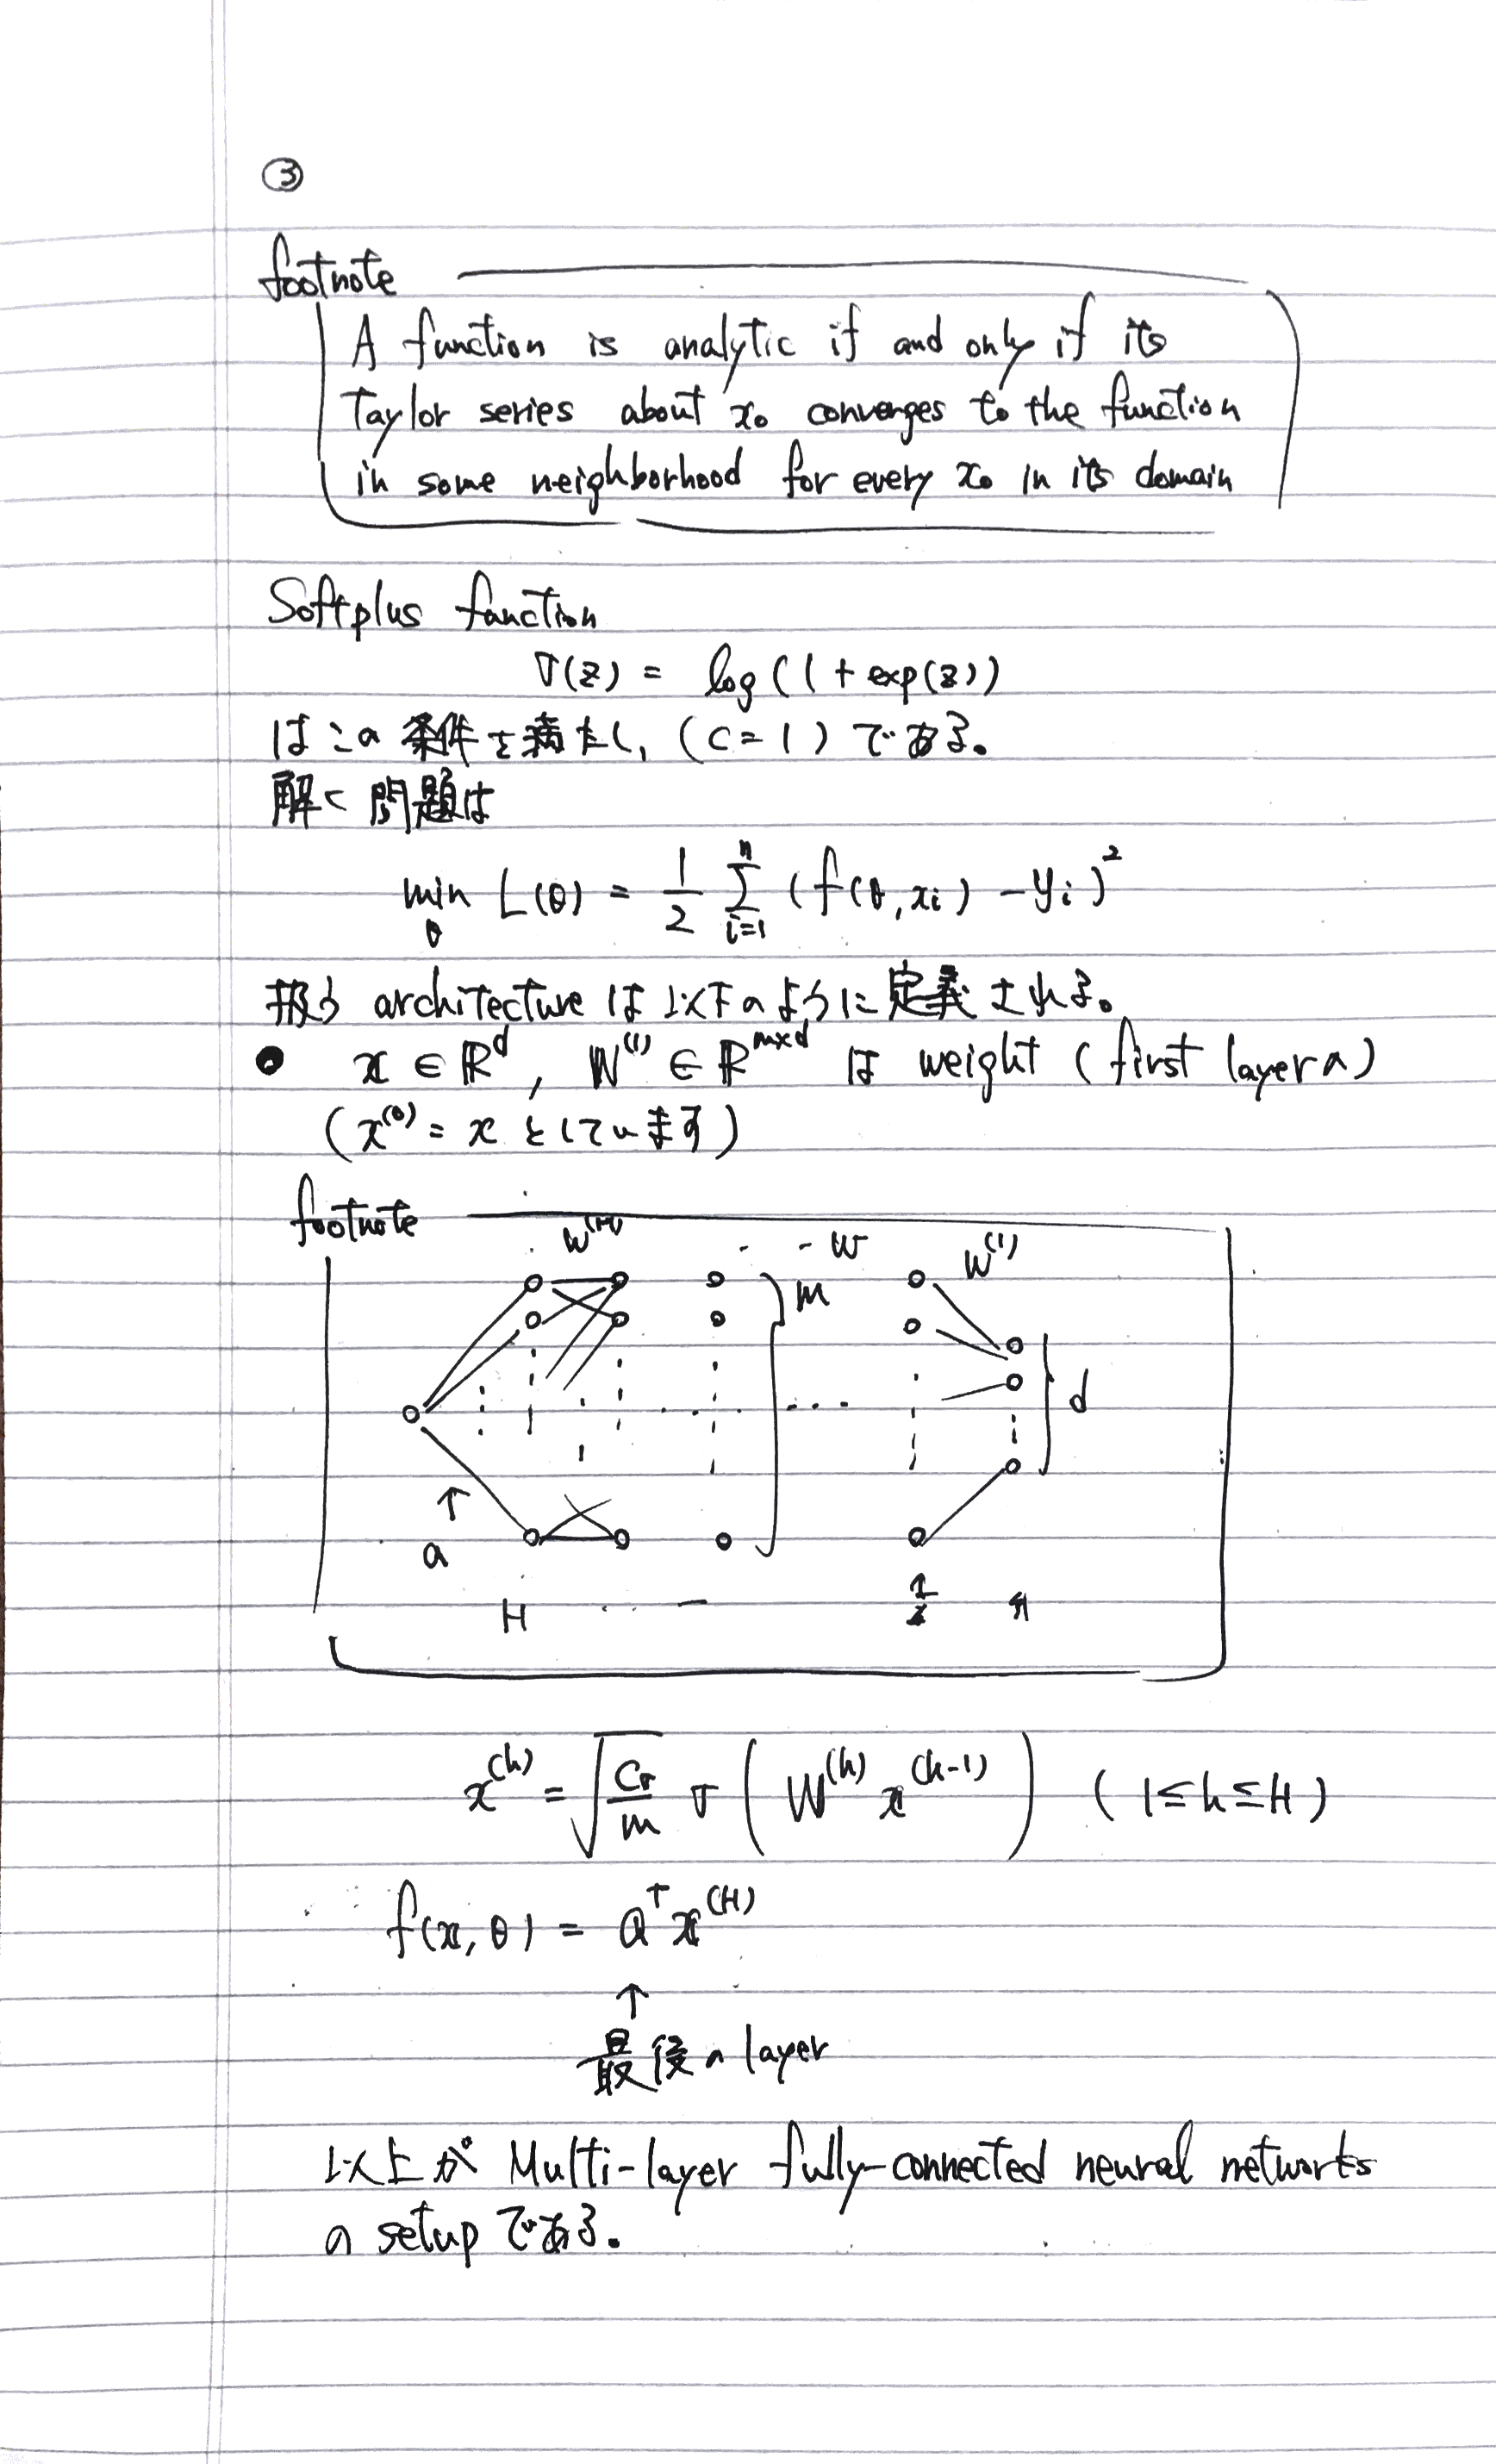 ③
footnote
A function is analytic if and only if its
Taylor series about x₀ converges to the function
in some neighborhood for every x₀ in its domain
Softplus function
σ(z) = log(1 + exp(z))
はこの条件を満たし, (c=1)である。
解く問題は
min_θ L(θ) = 1/2 Σ_{i=1}^{n} (f(θ, xᵢ) − yᵢ)²
扱う architecture は以下のように定義される。
● x ∈ ℝ^d, W^(1) ∈ ℝ^{m×d} は weight (first layerの)
(x^(0) = x としています)
footnote
W^(H) - - W W^(1)
m
d
↑
a
H . . -
x^(h) = √(c_σ/m) σ(W^(h) x^(h-1)) (1≤h≤H)
f(x, θ) = a^T x^(H)
↑
最後の layer
以上が Multi-layer fully-connected neural networks
の setup である。